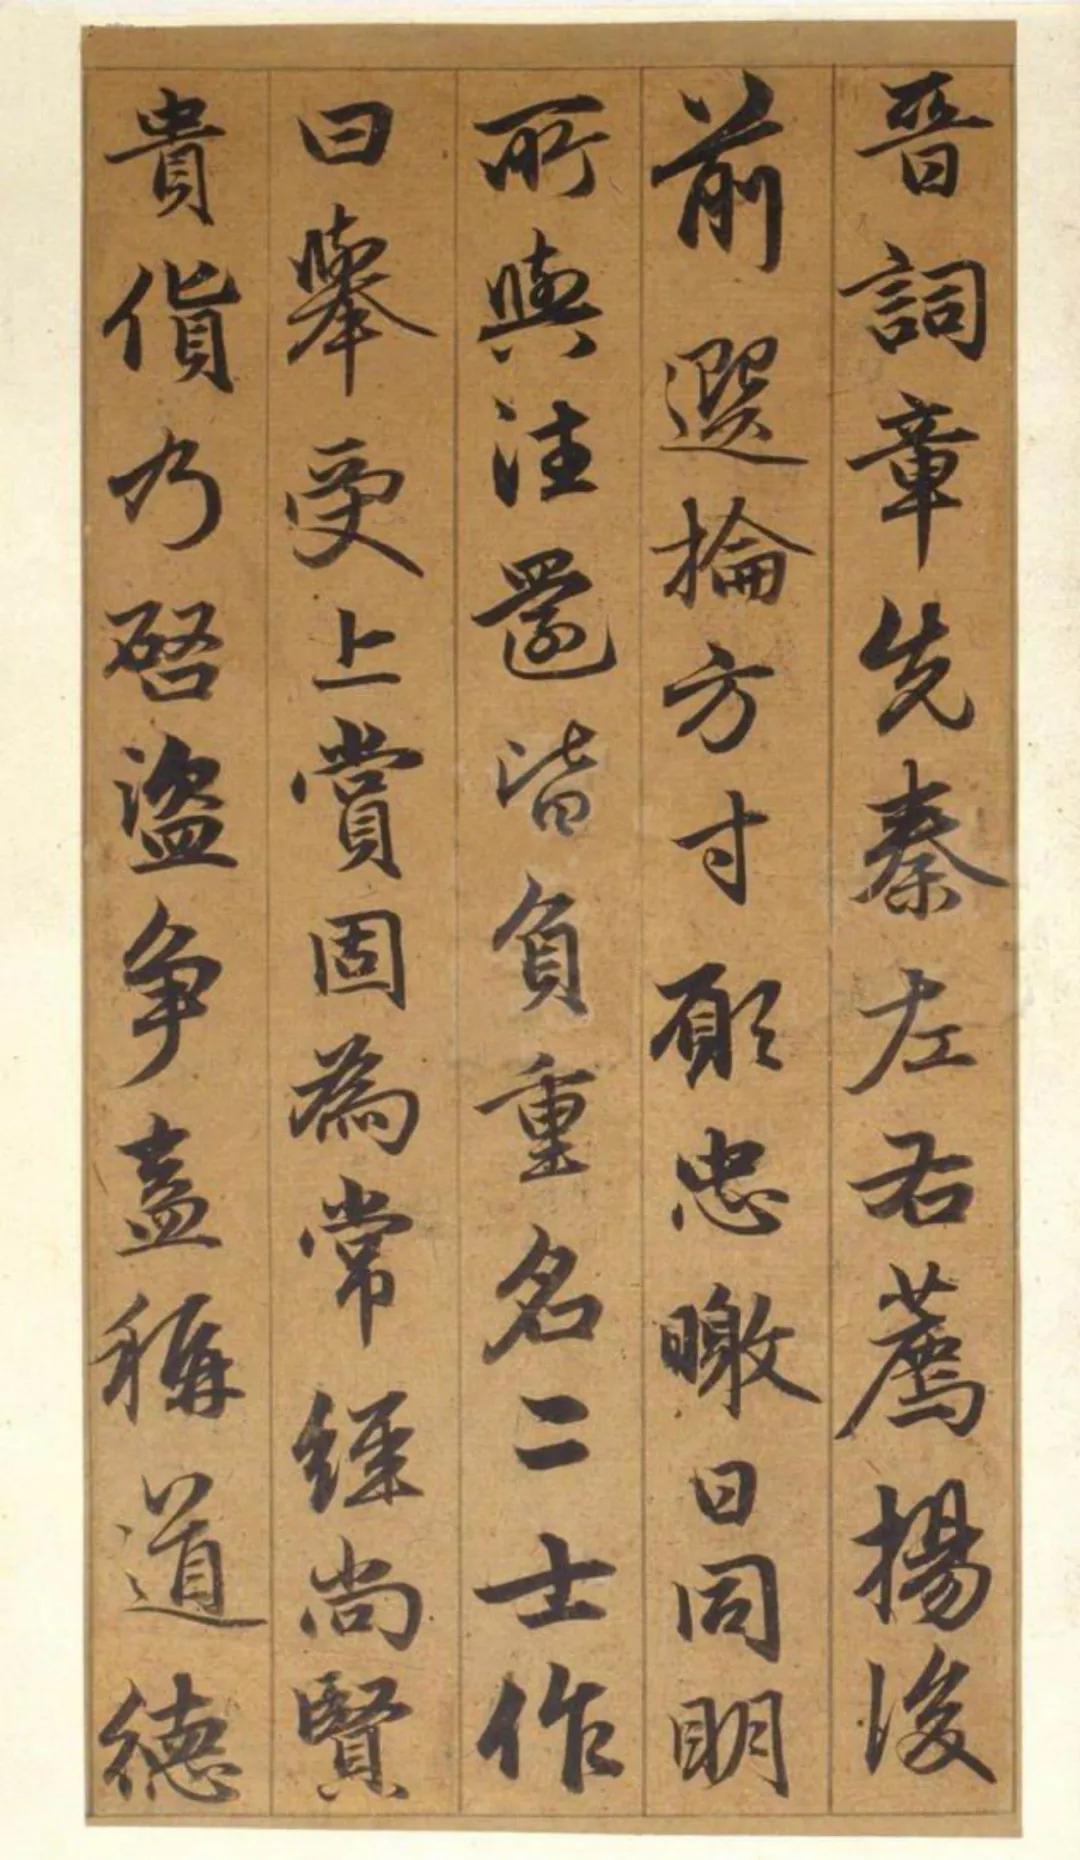 晉詞章先秦左右薦揚後
前選掄方寸願忠曒日同明
所與往還皆負重名二士作
曰舉受上賞固為常經尚賢
貴貨乃啓盜爭盖稱道德